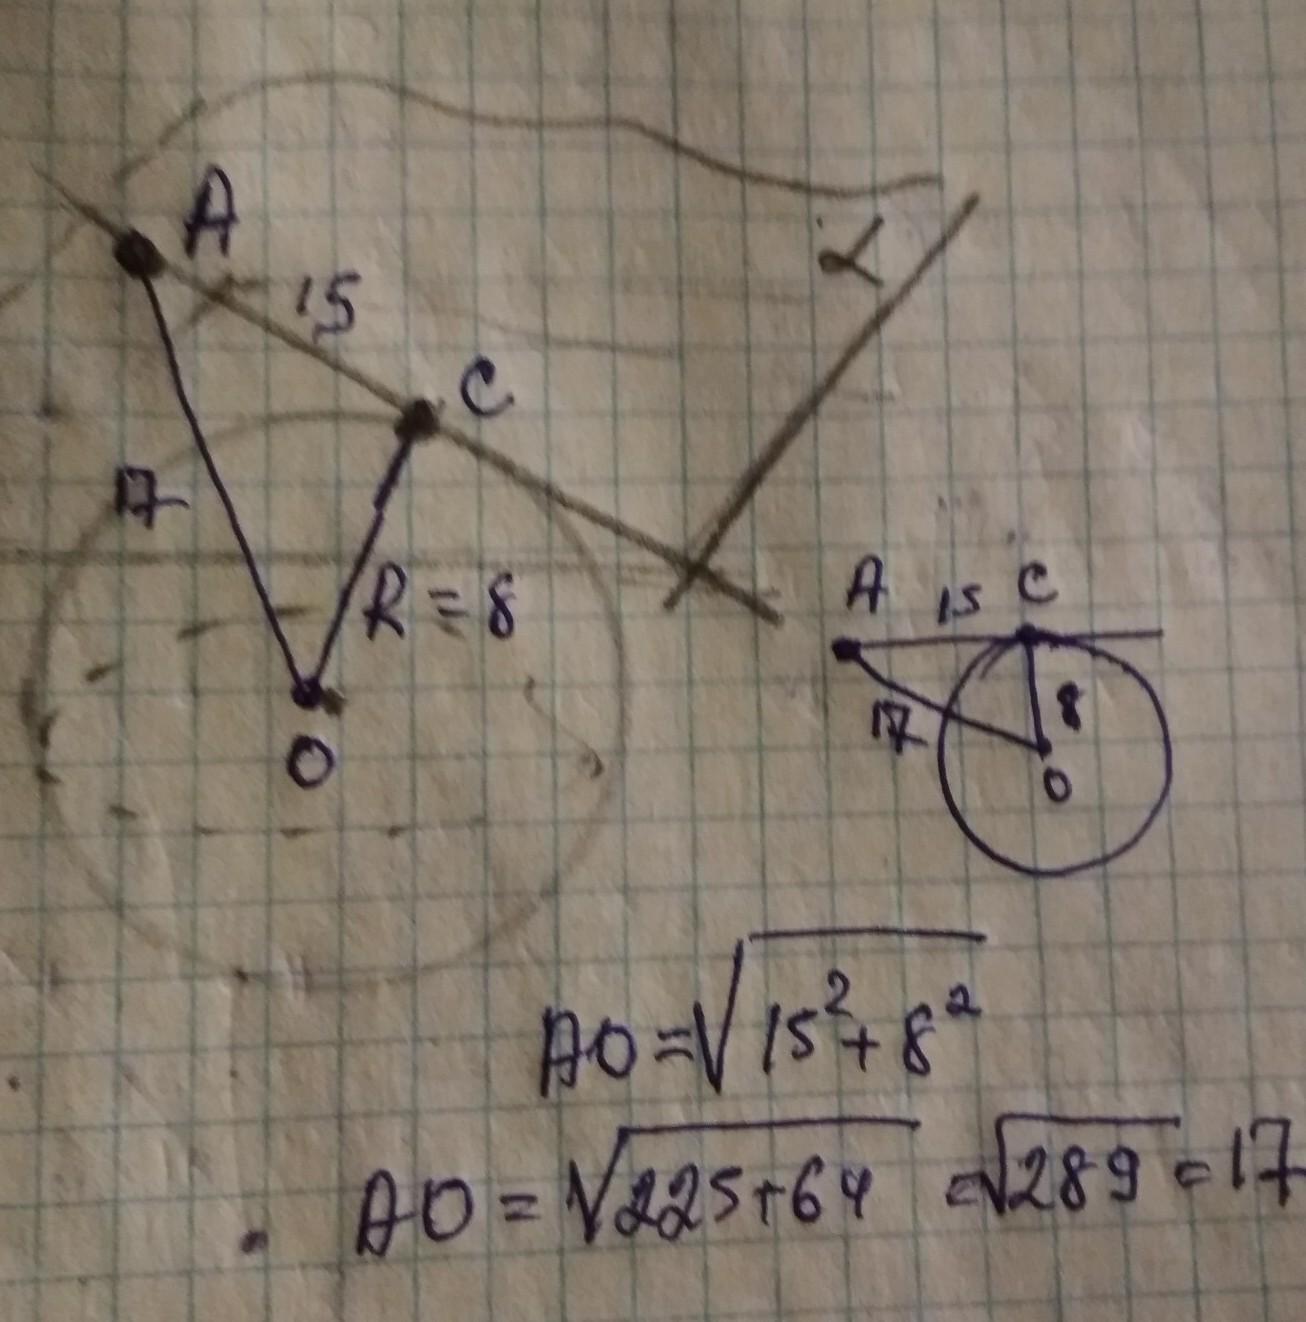 A
15
α
C
17
R = 8
O
A 15 C
17
8
O
AO = √15² + 8²
AO = √225+64 = √289 = 17